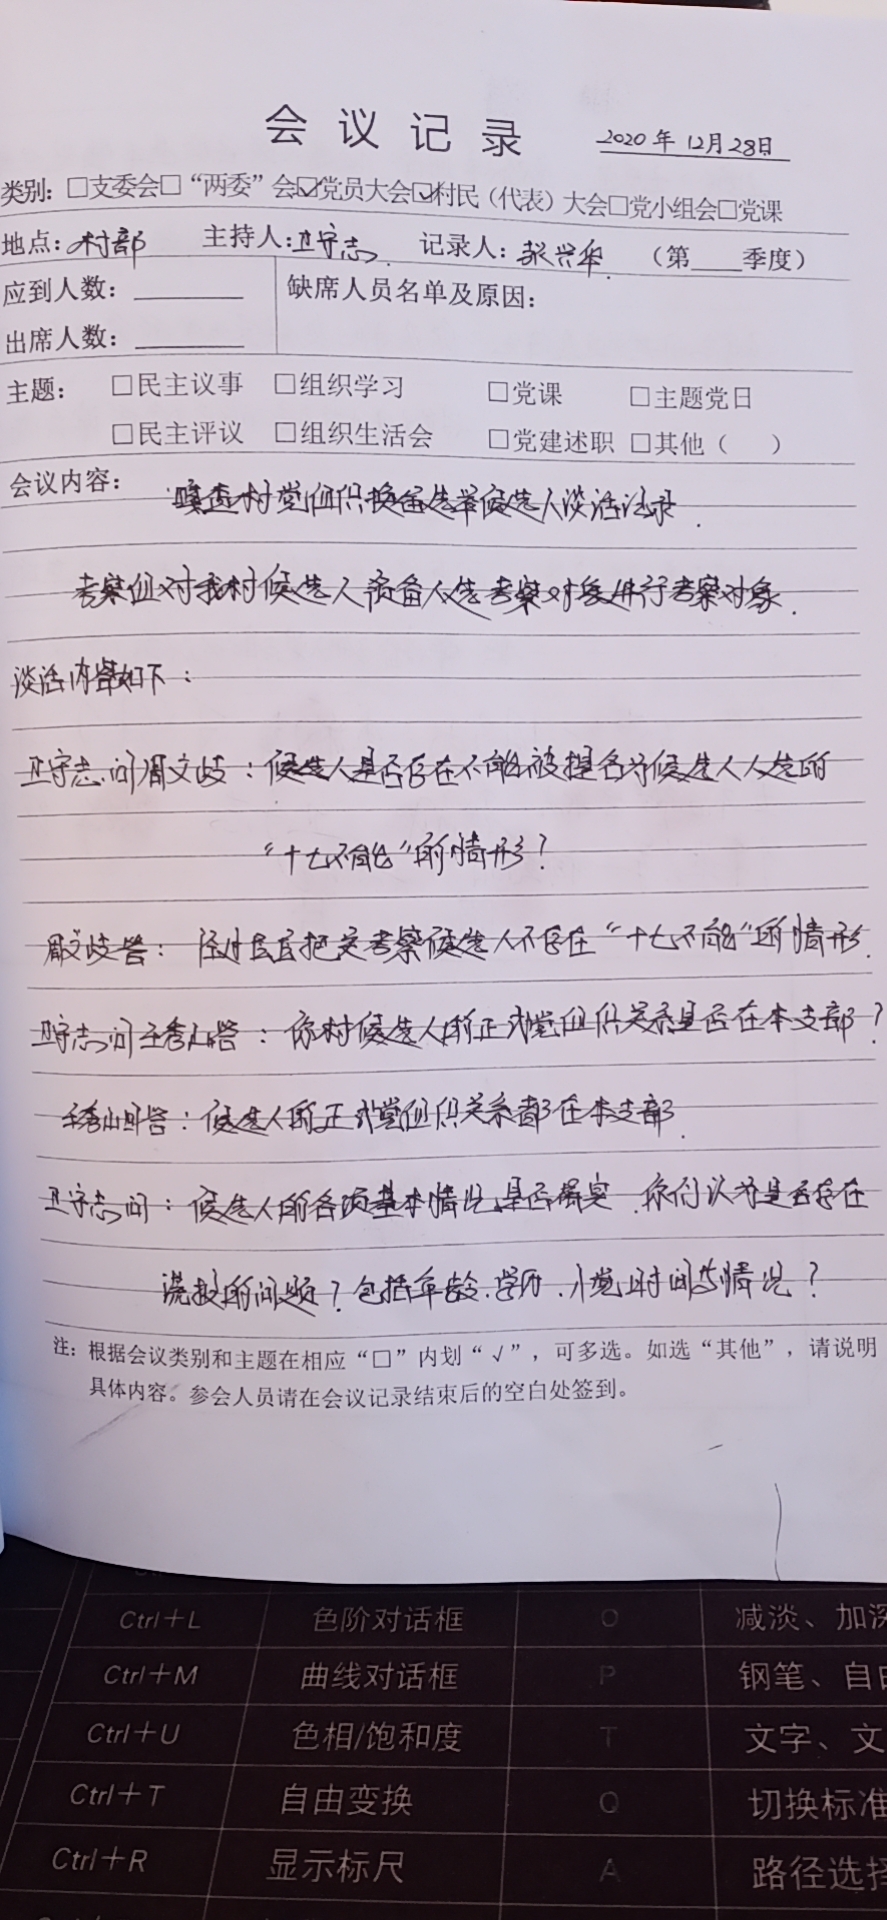 会议记录 2020年12月28日
类别：□支委会□“两委”会☑党员大会☑村民（代表）大会□党小组会□党课
地点：村部 主持人：卫守志. 记录人：张兴华. （第____季度）
应到人数：________ 缺席人员名单及原因：
出席人数：________
主题： □民主议事 □组织学习 □党课 □主题党日
□民主评议 □组织生活会 □党建述职 □其他（ ）
会议内容： 村党组织换届选举候选人谈话记录.
考察组对我村候选人预备人选考察对象进行考察对象.
谈话内容如下：
卫守志问周文歧：候选人是否存在不能被提名为候选人人选的
“十七不能”的情形？
周文歧答：经过层层把关考察候选人不存在“十七不能”的情形.
卫守志问王秀山答：你村候选人的正式党组织关系是否在本支部？
王秀山回答：候选人的正式党组织关系都在本支部.
卫守志问：候选人的各项基本情况是否属实.你们认为是否存在
谎报的问题？包括年龄.学历.入党时间等情况？
注：根据会议类别和主题在相应“□”内划“√”，可多选。如选“其他”，请说明
具体内容。参会人员请在会议记录结束后的空白处签到。
Ctrl＋L 色阶对话框 O 减淡、加深
Ctrl＋M 曲线对话框 P 钢笔、自由
Ctrl＋U 色相/饱和度 T 文字、文
Ctrl＋T 自由变换 Q 切换标准
Ctrl＋R 显示标尺 A 路径选择